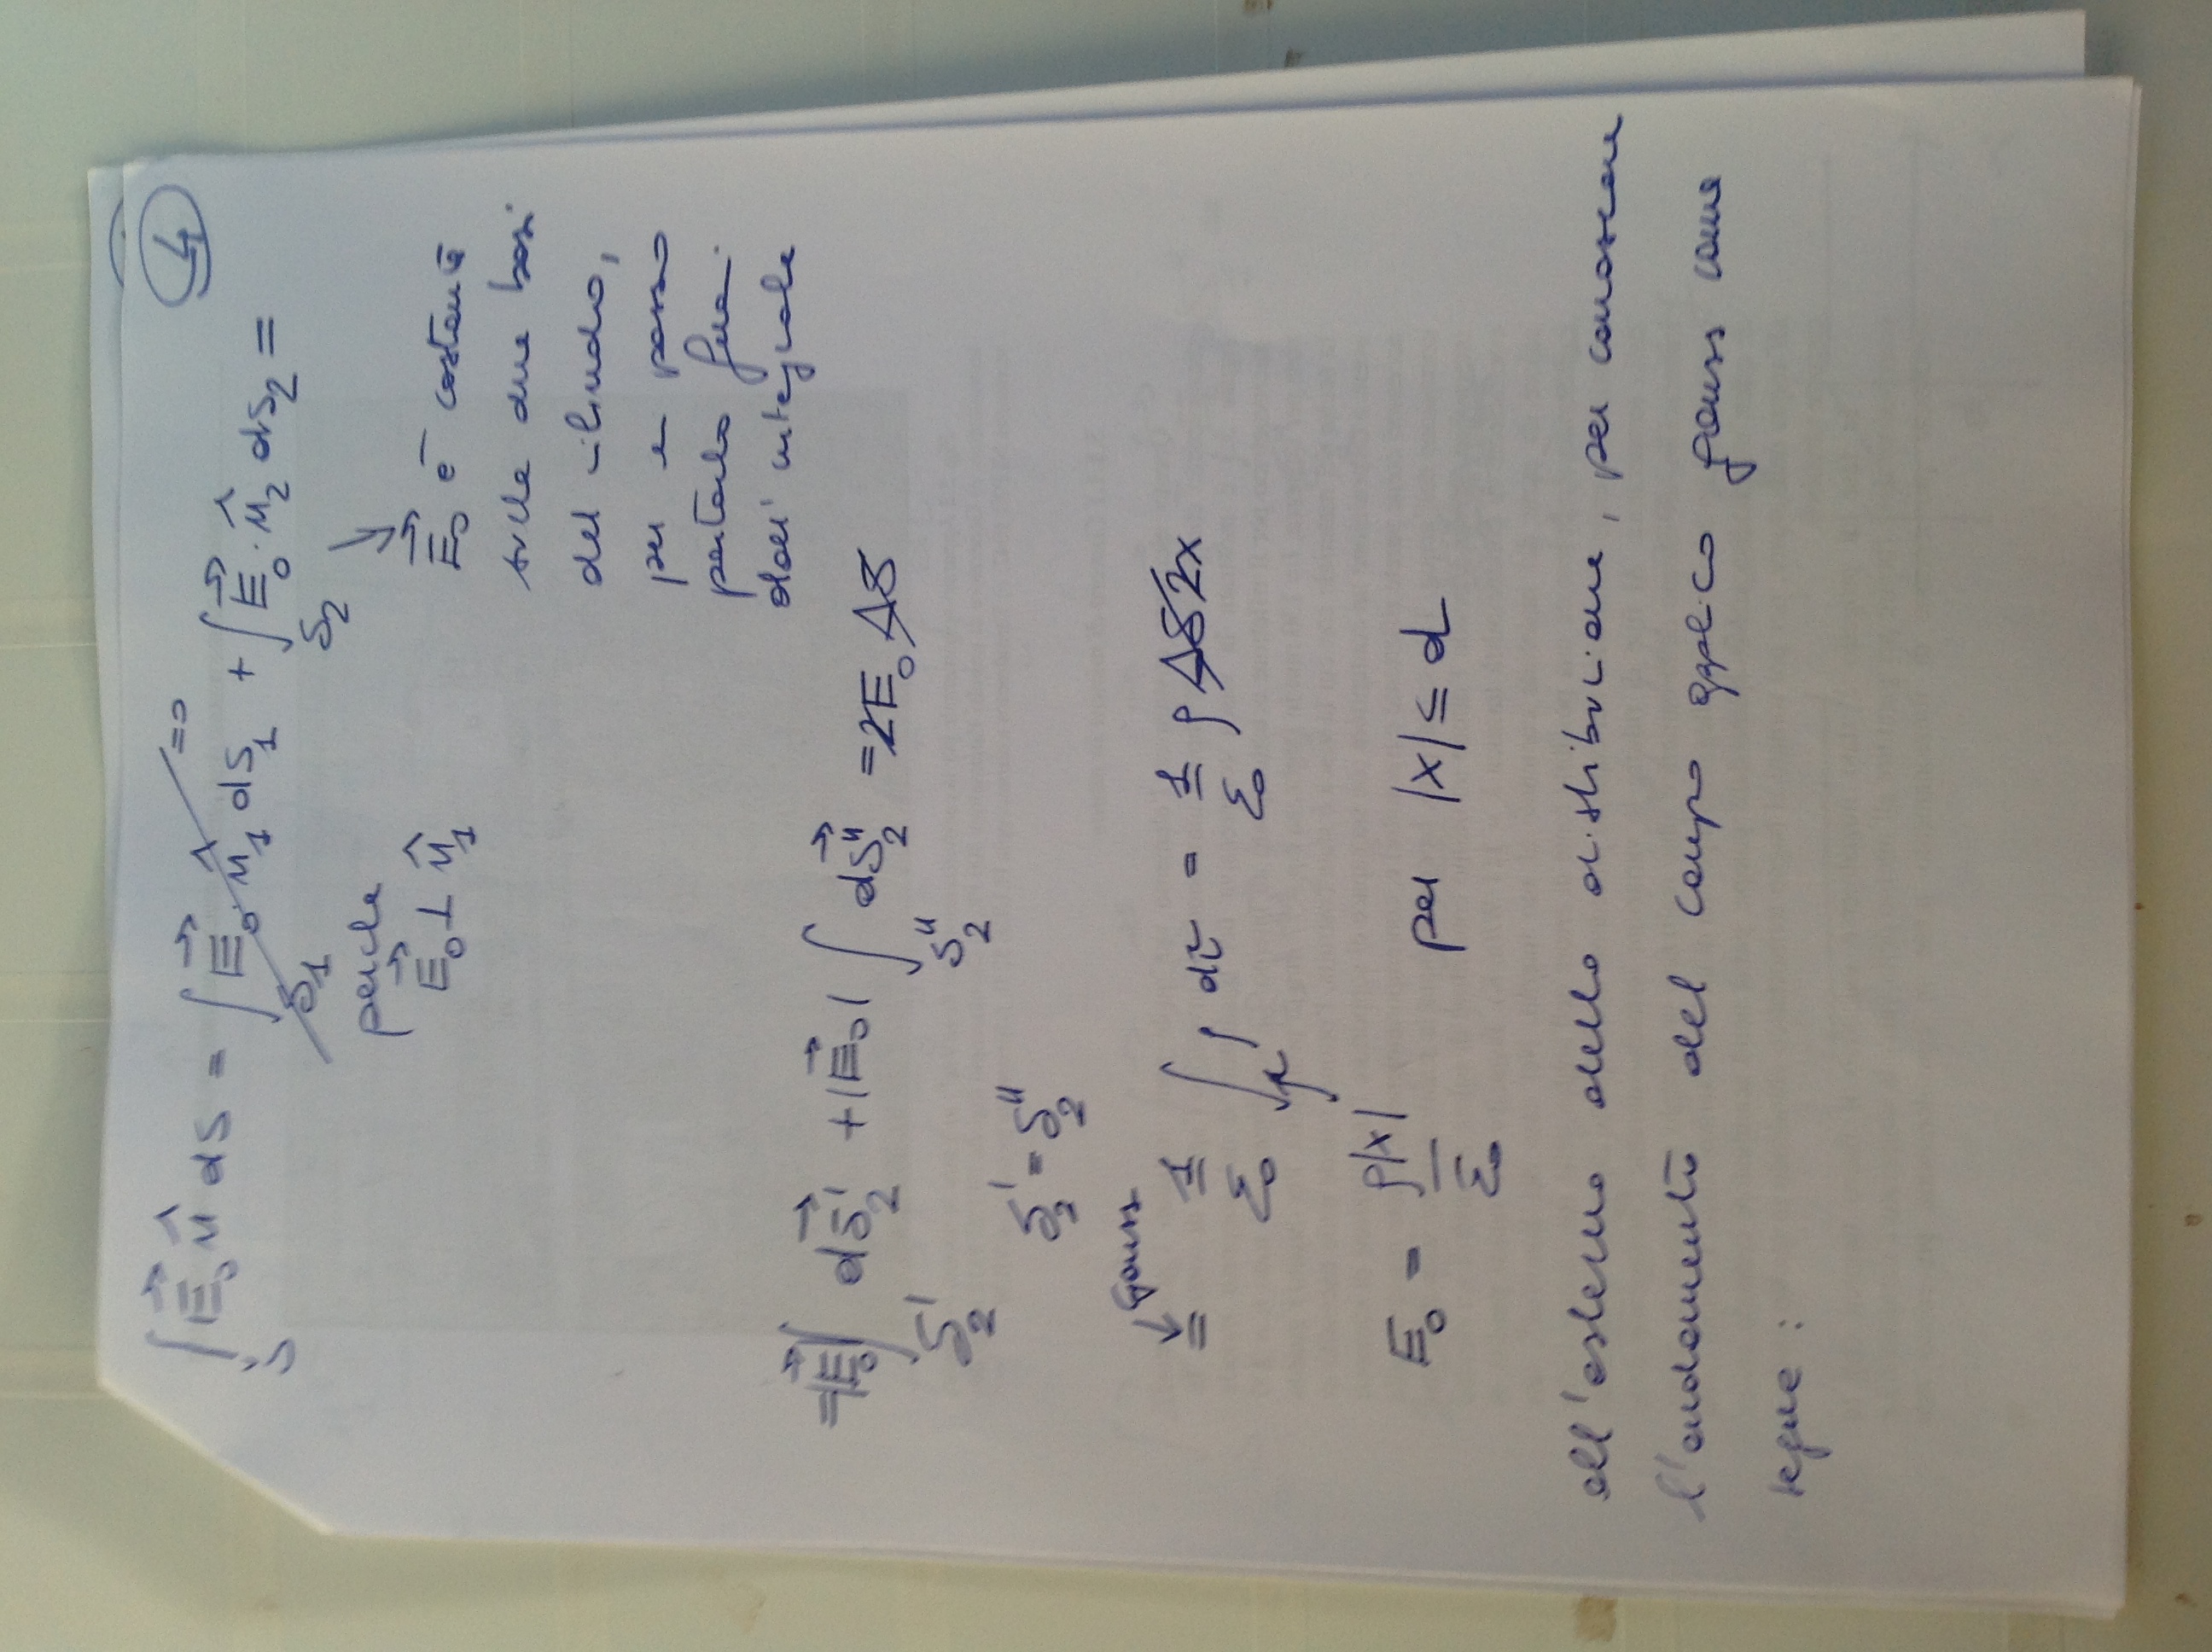 4
∫_S E⃗₀ û dS = ∫_S₁ E⃗₀ · û₁ dS₁ =0 + ∫_S₂ E⃗₀ · û₂ dS₂ =
perche
E⃗₀ ⊥ û₁
E⃗₀ è costante
sulle due basi
del cilindro,
per cui posso
portarlo fuori
dall' integrale
= |E⃗₀| ∫_S₂' dS⃗₂' + |E⃗₀| ∫_S₂'' dS⃗₂'' = 2E₀ ΔS
S₂' = S₂''
gauss
= 1/ε₀ ∫_τ ρ dτ = 1/ε₀ ρ ΔS 2x
E₀ = ρ|x|/ε₀ per |x| ≤ d
all'esterno della distribuzione, per conoscere
l'andamento del campo applico gauss come
segue :